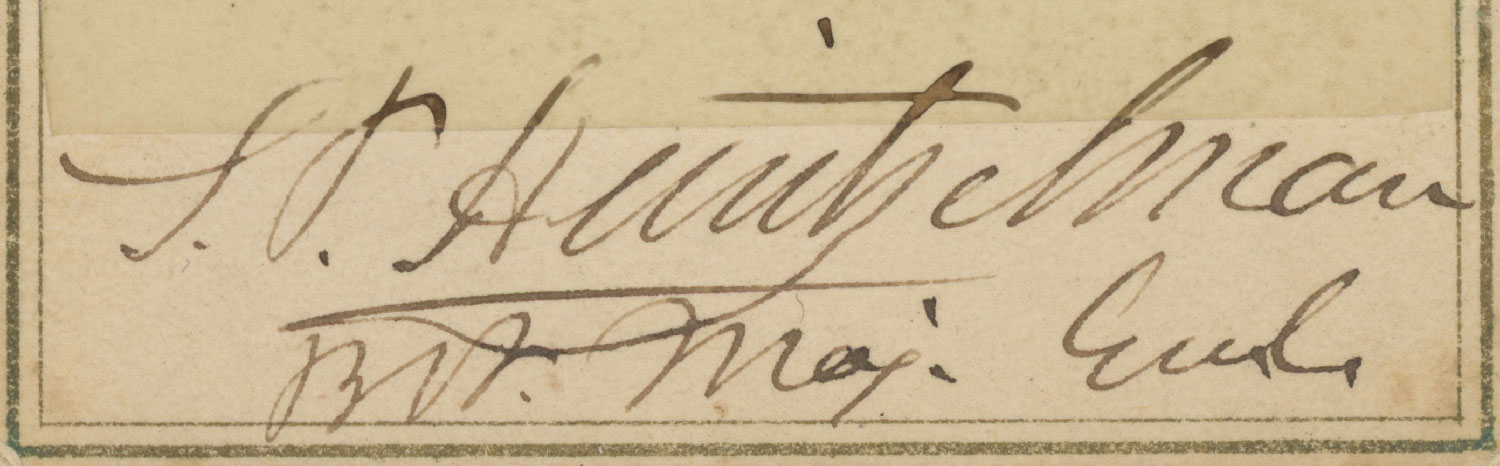 S. P. Heintzelman
Bvt. Maj. Genl.